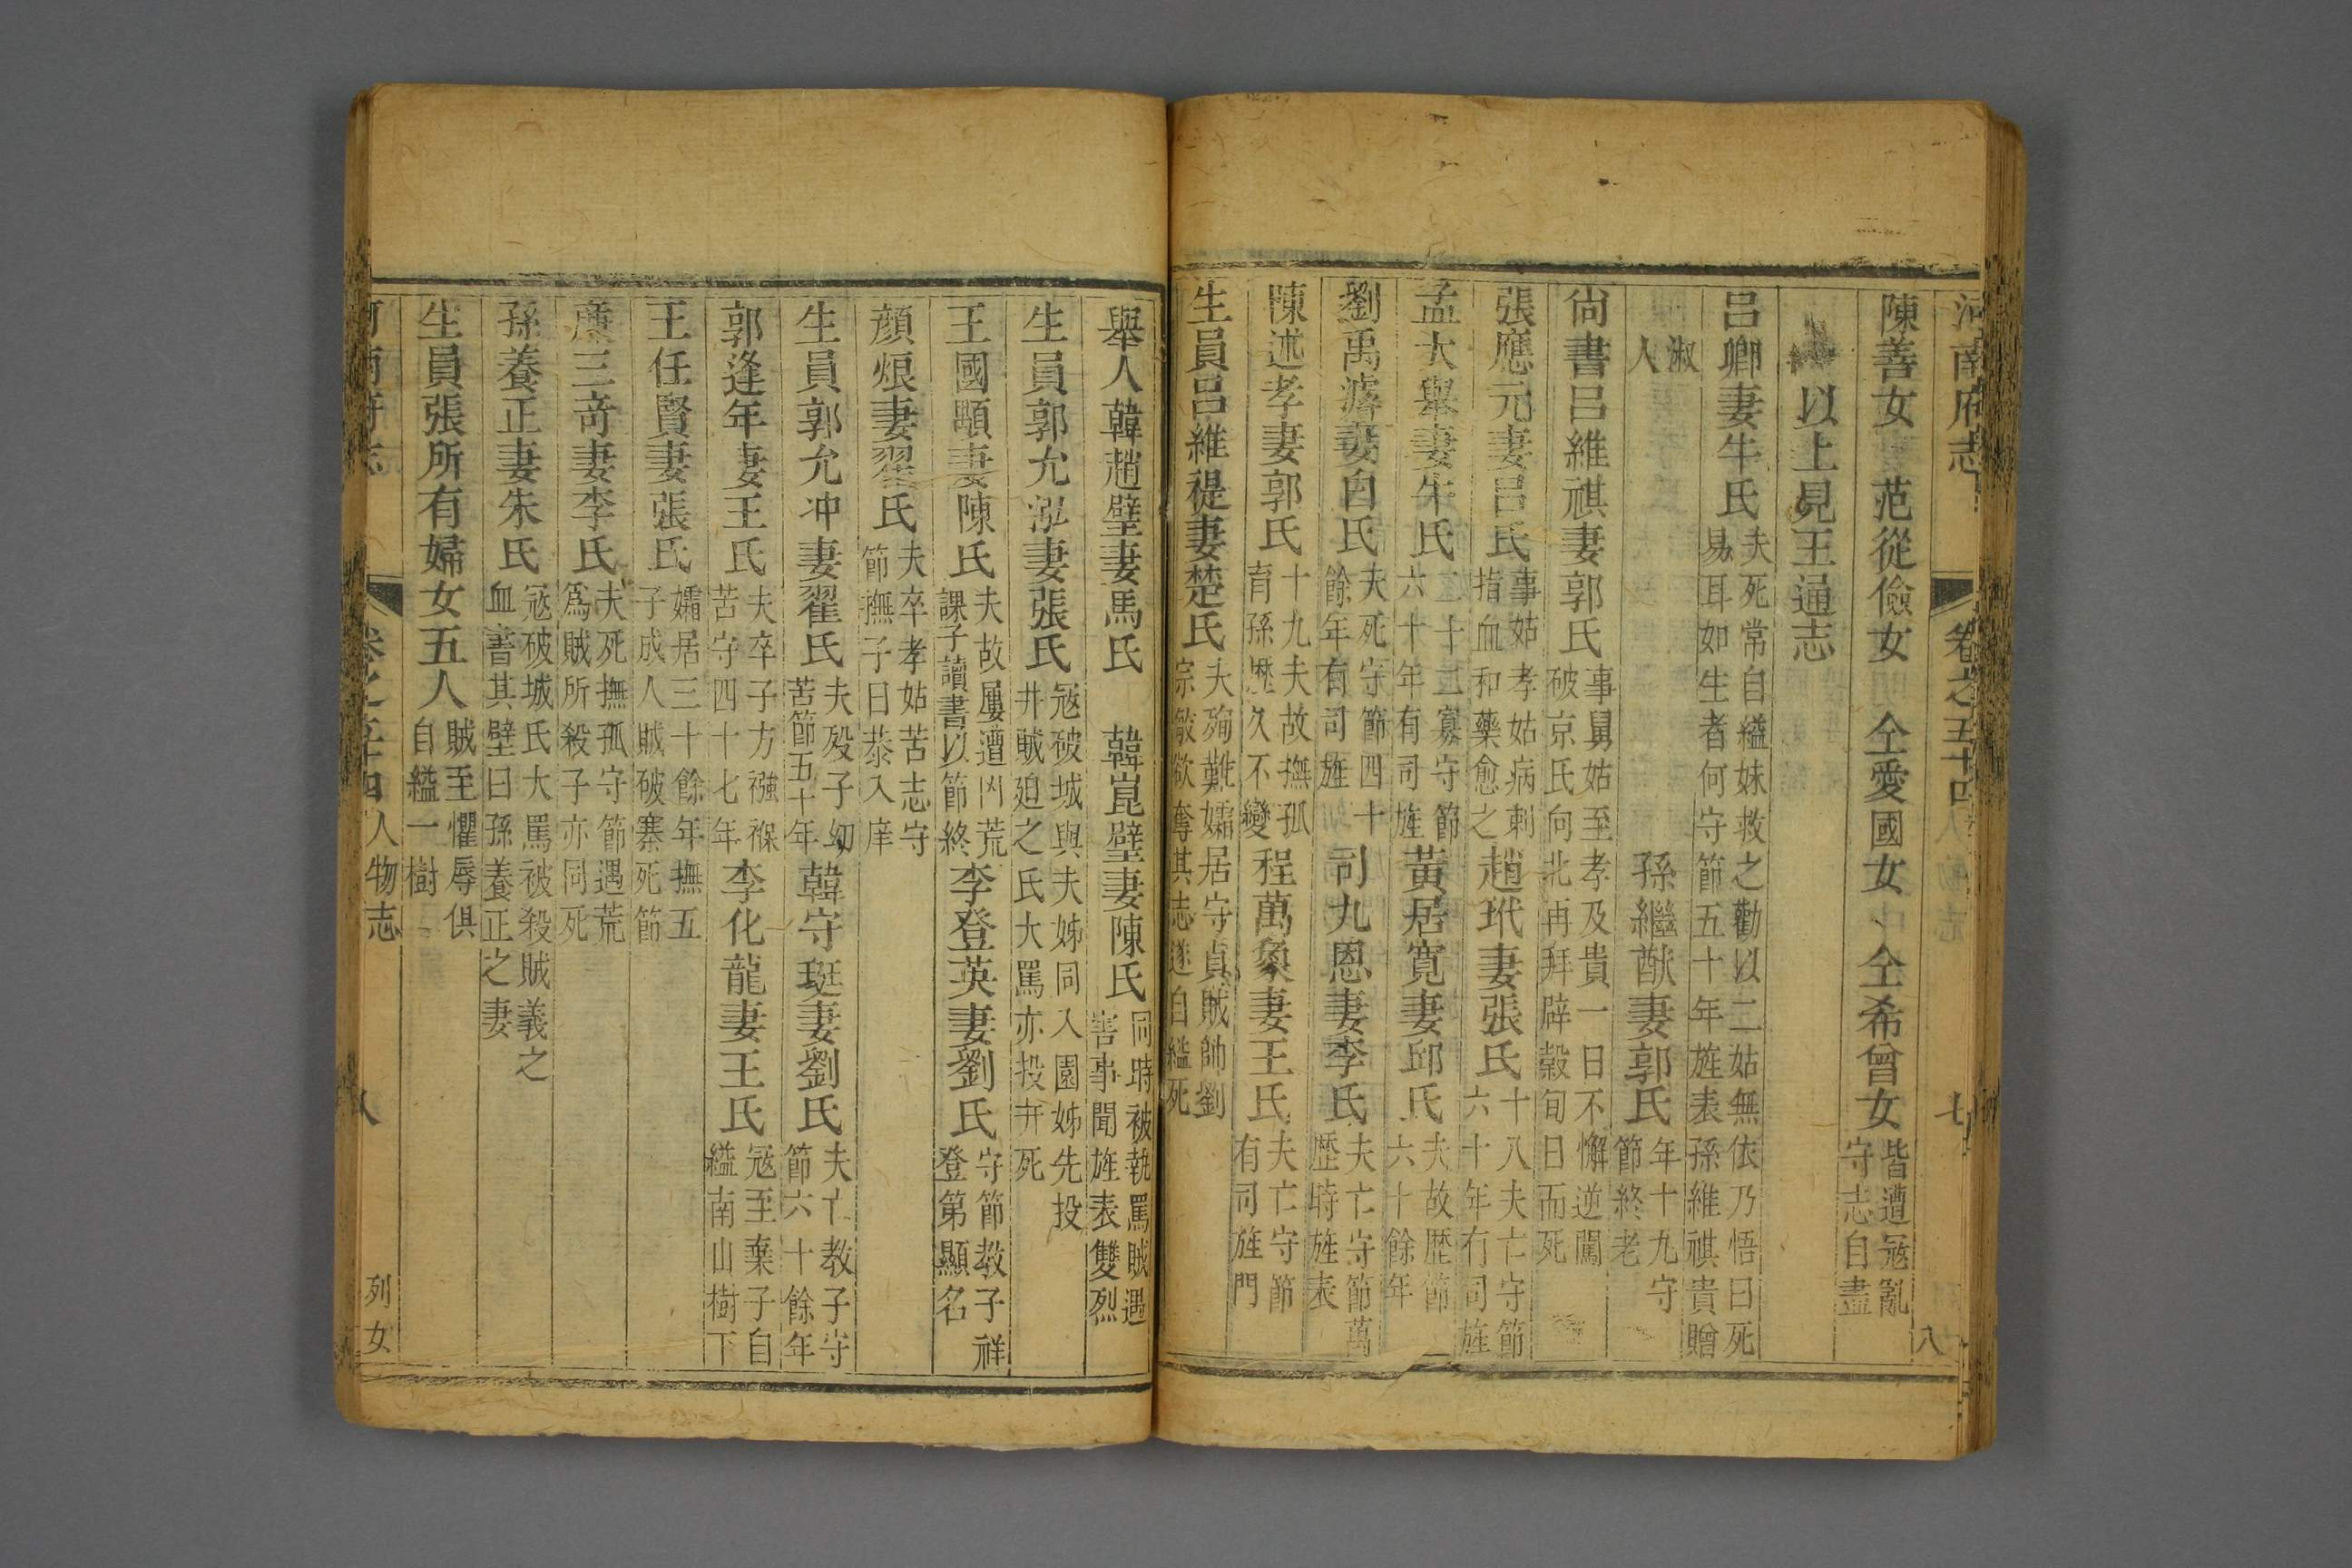 河南府志 卷之五十四 人物志 七 八
陳善女 范從儉女 仝愛國女 仝希曾女 皆遭寇亂守志自盡
以上見王通志
呂卿妻牛氏 夫死常自縊妹救之勸以二姑無依乃悟曰死易耳如生者何守節五十年旌表孫維祺貴贈
淑人 孫繼猷妻郭氏 年十九守節終老
尚書呂維祺妻郭氏 事舅姑至孝及貴一日不懈逆闖破京氏向北再拜辟穀旬日而死
張應元妻呂氏 事姑孝姑病刺指血和藥愈之 趙玳妻張氏 十八夫亡守節六十年有司旌
孟大舉妻牛氏 二十二寡守節六十年有司旌 黃居寬妻邱氏 夫故歴節六十餘年
劉禹濂妻白氏 夫死守節四十餘年有司旌 司九恩妻李氏 夫亡守節萬歴時旌表
陳述孝妻郭氏 十九夫故撫孤育孫歴久不變 程萬象妻王氏 夫亡守節有司旌門
生員呂維禔妻楚氏 夫殉難孀居守貞賊帥劉宗敏欲奪其志遂自縊死
舉人韓趙璧妻馬氏 韓崑璧妻陳氏 同時被執罵賊遇害事聞旌表雙烈
生員郭允泓妻張氏 寇破城與夫姊同入園姊先投井賊廹之氏大罵亦投井死
王國顯妻陳氏 夫故屢遭凶荒課子讀書以節終 李登英妻劉氏 守節教子祥登第顯名
顔烺妻翟氏 夫卒孝姑苦志守節撫子日恭入庠
生員郭允冲妻翟氏 夫殁子幼苦節五十年 韓守珽妻劉氏 夫亡教子守節六十餘年
郭逢年妻王氏 夫卒子方襁褓苦守四十七年 李化龍妻王氏 寇至棄子自縊南山樹下
王任賢妻張氏 孀居三十餘年撫五子成人賊破寨死節
三奇妻李氏 夫死撫孤守節遇荒爲賊所殺子亦同死
孫養正妻朱氏 寇破城氏大罵被殺賊義之血書其壁曰孫養正之妻
生員張所有婦女五人 賊至懼辱俱自縊一樹
河南府志 卷之五十四 人物志 八 列女